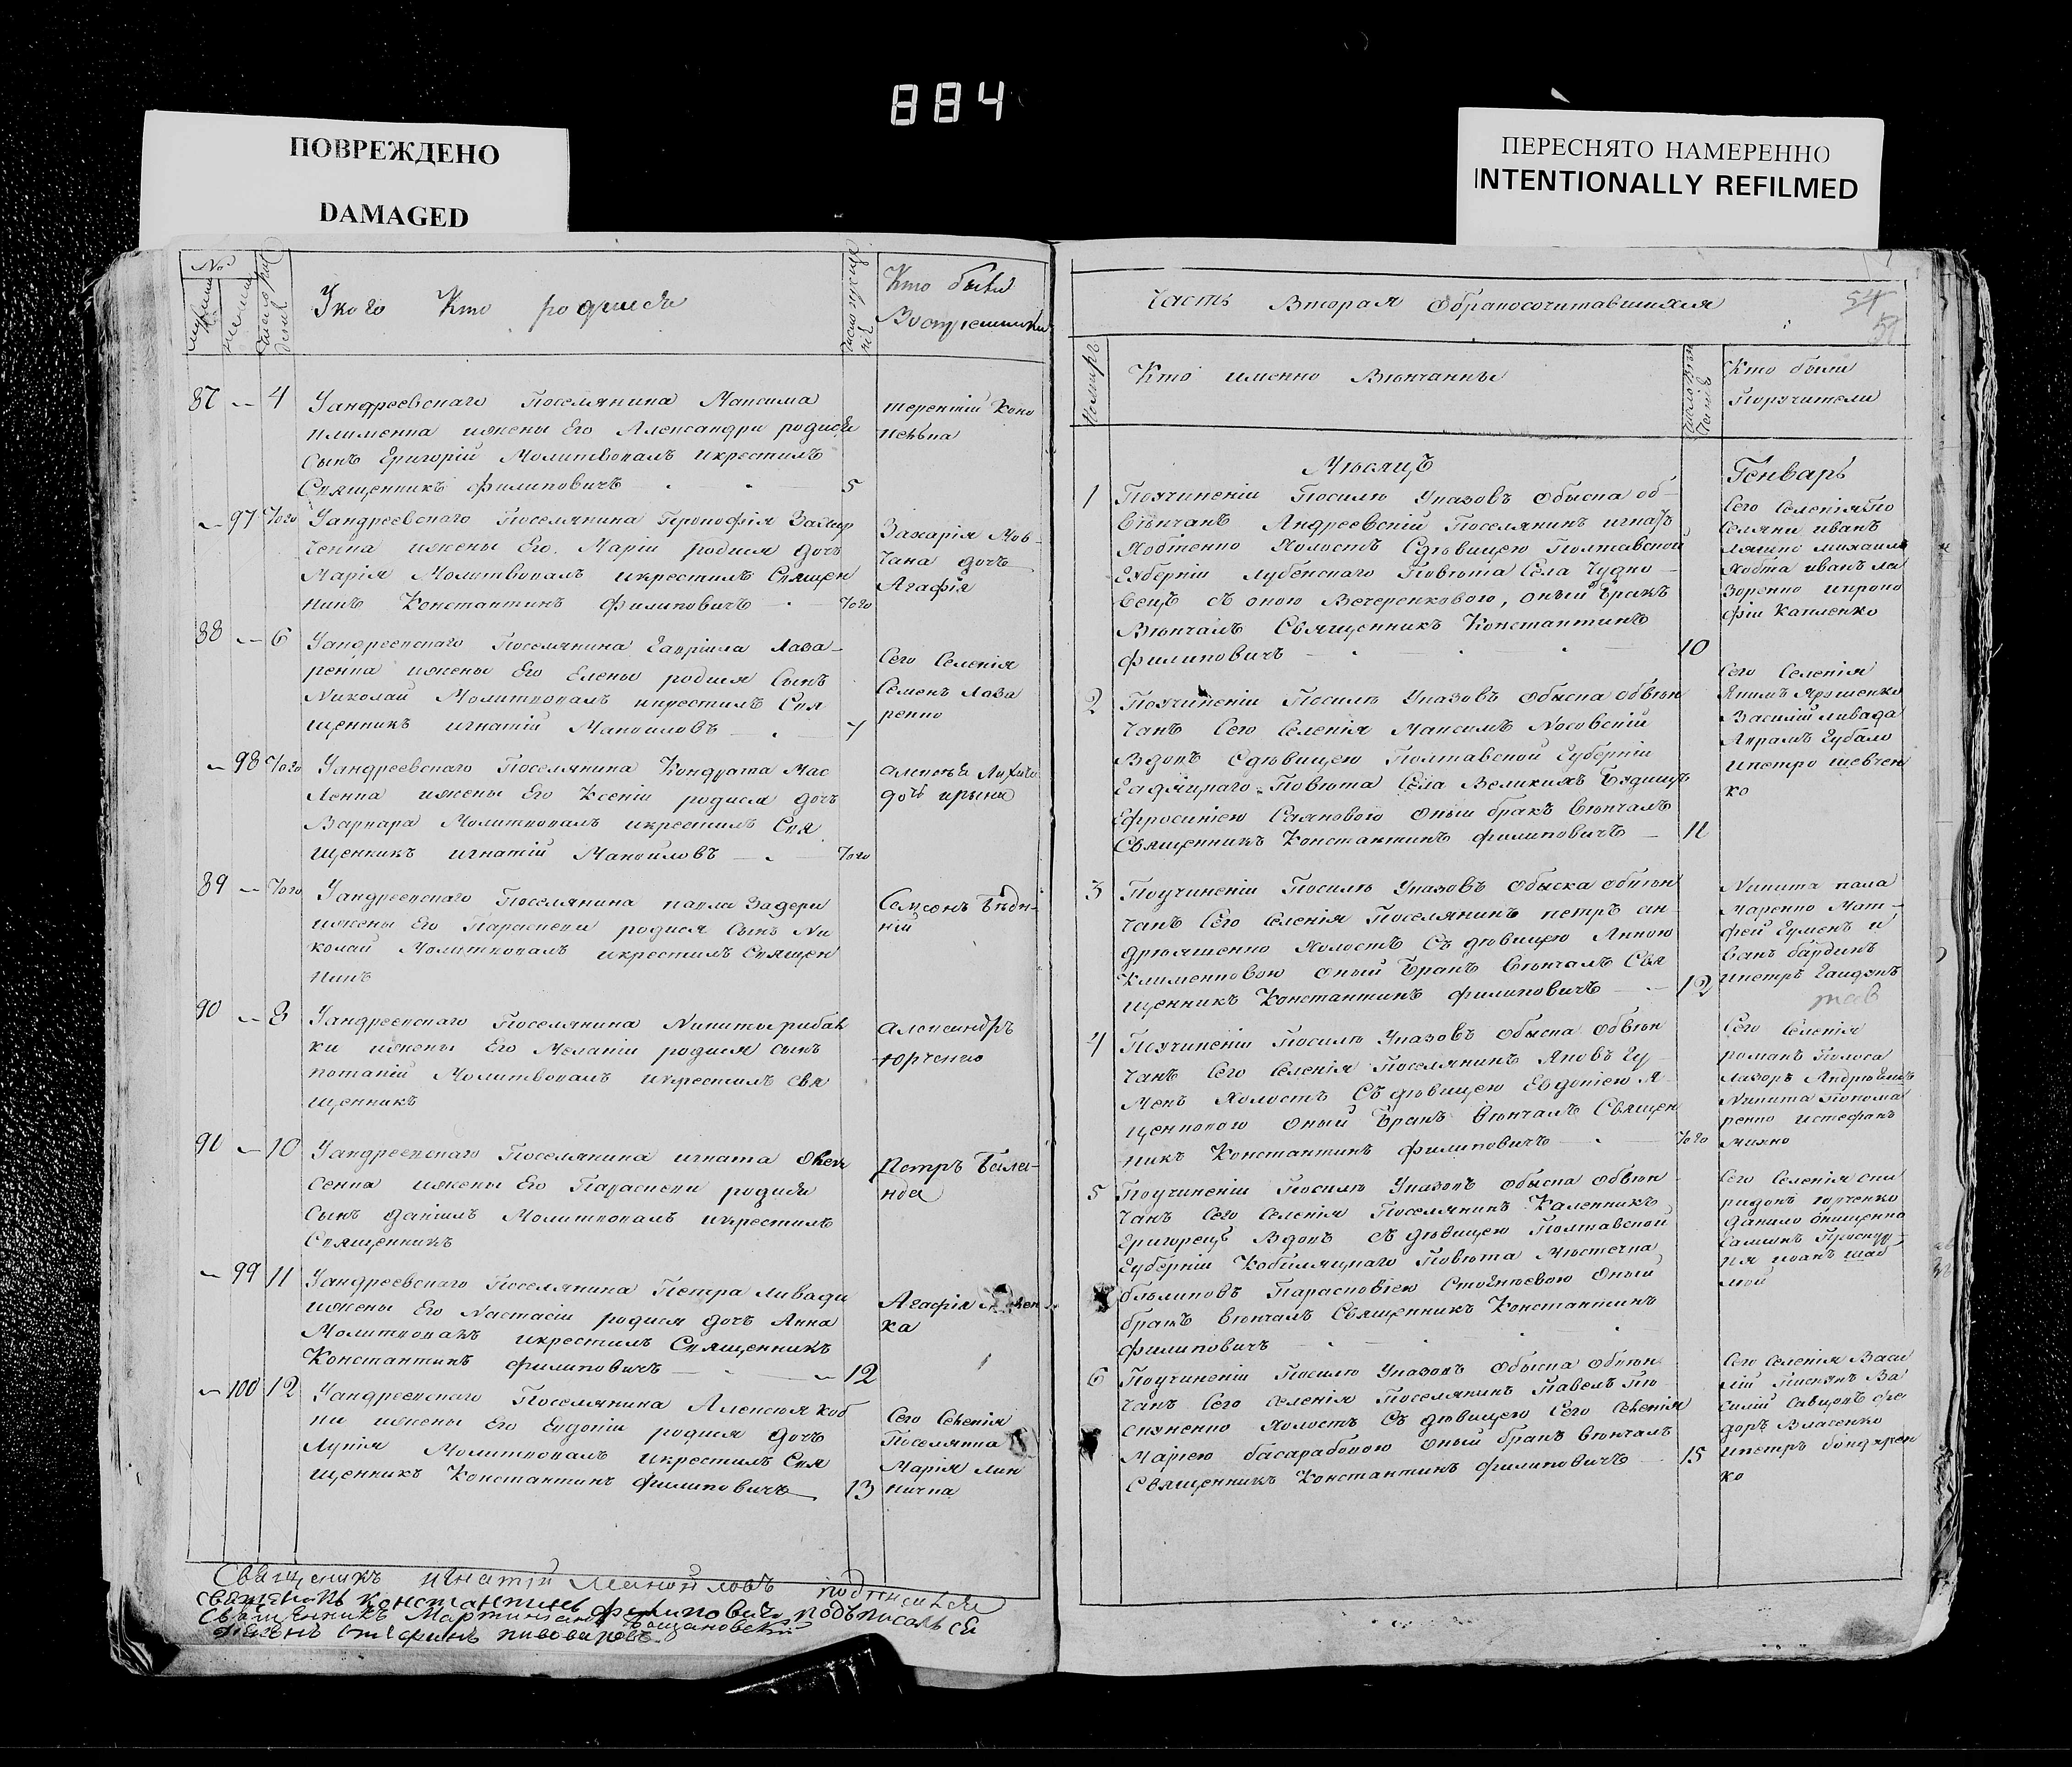 884
ПОВРЕЖДЕНО
DAMAGED
ПЕРЕСНЯТО НАМЕРЕННО
INTENTIONALLY REFILMED
№
У кого Кто родился
Кто были
Восприемники
87 4 Уандреевскаго Поселянина Максима
Клименка ижены Его Александри родися
Сынъ Григорій Молитвовалъ икрестилъ
Священникъ филиповичъ 5
терентій Коно
97 Того Уандреевскаго Поселянина
ижены Его Маріи родися дочъ
Марія Молитвовалъ икрестилъ Священ
никъ Константинъ филиповичъ Того
Захарія Мов-
чана дочъ
Агафія
88 6 Уандреевскаго Поселянина Гавріила Лаза-
ренка ижены Его Елены родися Сынъ
Николай Молитвовалъ икрестилъ Свя
щенникъ игнатій Маноиловъ 7
Сего Селенія
Семенъ Лаза
ренко
98 Того Уандреевскаго Поселянина Кондрата Мас
ленка ижены Его Ксеніи родися дочъ
Варвара Молитвовалъ икрестилъ Свя
щенникъ игнатій Маноиловъ Того
дочъ ирина
89 Того Уандреевскаго Поселянина павла Задери
ижены Его Параскеви родися Сынъ Ни
колай Молитвовалъ икрестилъ Священ
никъ
Самсонъ Бѣдн-
ній
90 8 Уандреевскаго Поселянина Никиты рибал
ки ижены Его Меланіи родися сынъ
потапій Молитвовалъ икрестилъ свя
щенникъ
александръ
юрченко
91 10 Уандреевскаго Поселянина игната Олек
сенка ижены Его Параскеви родися
Сынъ даніилъ Молитвовалъ икрестилъ
Священникъ
петръ Бала-
нда
99 11 Уандреевскаго Поселянина Петра ливади
ижены Его Настасіи родися дочъ Анна
Молитвовалъ икрестилъ Священникъ
Константинъ филиповичъ 12
Агафія
ка
100 12 Уандреевскаго Поселянина Алексѣя Коб
ки ижены Его Евдокіи родися дочъ
Лукія Молитвовалъ икрестилъ Свя
щенникъ Константинъ филиповичъ 13
Сего Селенія
Поселянка
Марія лин
ничка
Священикъ игнатій Маноиловъ подписался
священикъ константинъ филиповичъ подъписалъся
Священникъ Мартиніанъ
дияконъ стефанъ пивоваровъ
Часть Вторая Обракосочитавшихся
54
Номиръ
Кто именно Вѣнчанны
Кто были
Поручители
Мѣсяцъ Генварь
1 Поучиненіи Посилѣ Указовъ обыска об-
вѣнчанъ Андреевскій Поселянинъ игнатъ
Ховтенко Холостъ Сдѣвицею Полтавской
Губерніи лубенскаго Повѣта Села Чудно-
вецъ Вечеренковою, оный Бракъ
Вѣнчалъ Священникъ Константинъ
филиповичъ 10
Сего Селенія По
селяни иванъ
лялино михаилъ
Ховта иванъ ла
зоренко ипроко
фій Капленко
2 Поучиненіи Посилѣ Указовъ обыска обвѣн
чанъ Сего Селенія Максимъ Носовскій
Вдовъ Сдѣвицею Полтавской Губерніи
Гадяцкаго Повѣта Села Великихъ Будищъ
Ефросиніею Саяновою оный бракъ вѣнчалъ
Священникъ Константинъ филиповичъ 11
Сего Селенія
Якимъ Ярошенко
Василій ливада
Аврамъ Губало
ипетро шевчен
ко
3 Поучиненіи Посилѣ Указовъ обыска обвѣн
чанъ Сего Селенія Поселянинъ петръ ан
дрющенко Холостъ Съ дѣвицею Анною
Клименковою оный Бракъ Вѣнчалъ Свя
щенникъ Константинъ филиповичъ 12
Никита пала
маренко Мат-
фей Гуменъ и
ванъ бардикъ
4 Поучиненіи Посилѣ Указовъ обыска обвѣн
чанъ Сего Селенія Поселянинъ Яковъ Гу
менъ Холостъ Съ дѣвицею Евдокіею Я
щенковою оный Бракъ Вѣнчалъ Священ
никъ Константинъ филиповичъ Того
Сего Селенія
романъ Колоса
лазоръ
Никита понома
ренко истефанъ
михно
5 Поучиненіи Посилѣ Указовъ обыска обвѣн
чанъ Сего Селенія Поселянинъ Каленникъ
Григорецъ Вдовъ Съ дѣвицею Полтавской
Губерніи Кобиляцкаго Повѣта Мѣстечка
бѣликовъ Парасковіею оный
бракъ вѣнчалъ Священникъ Константинъ
филиповичъ
Сего Селенія спи
ридонъ юрченко
данило онищенко
иванъ шав
6 Поучиненіи Посилѣ Указовъ обыска обвѣн
чанъ Сего Селенія Поселянинъ Павелъ
Холостъ Съ дѣвицею Сего Селенія
Маріею басарабовою оный бракъ вѣнчалъ
Священникъ Константинъ филиповичъ 15
Сего Селенія Васи
лій Ва
силій Савцовъ фе
доръ Власенко
ипетръ бондарен
ко